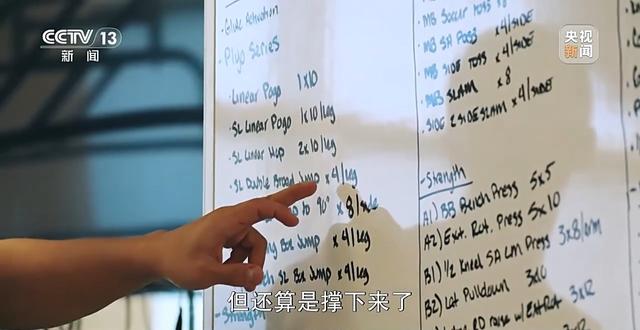 CCTV 13
新闻
央视
新闻
Glute Activation
Plyo Series
- Linear Pogo 1x10
- SL Linear Pogo 1x10/leg
- SL Linear Hop 2x10/leg
- SL Double Broad Jump x4/leg
to 90° x8/side
Box Jump x4/leg
SL Box Jump x4/leg
- Strength
MB Soccer Toss x4/side
MB SA Toss x4/side
MB Side Toss x4/side
MB Slam x8
Side 2 Side Slam x4/side
- Strength
A1) BB Bench Press 5x5
A2) Ext. Rot. Press 5x10
B1) 1/2 Kneel SA LM Press 3x8/arm
B2) Lat Pulldown
raise w/ Ext Rot 3x12
但还算是撑下来了